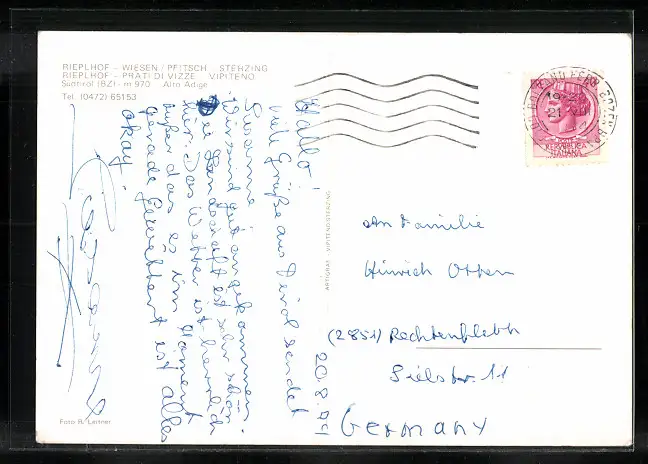 RIEPLHOF - WIESEN / PFITSCH STERZING
RIEPLHOF - PRATI DI VIZZE VIPITENO
Südtirol (BZ) - m 970 Alto Adige
Tel. (0472) 65153
Hallo!
Viele Grüße aus Tirol sendet
Susanne!
Wir sind gut angekommen.
Die Landschaft ist sehr schön
hier. Das Wetter ist herrlich
außer das es im Moment
gerade gewittert ist alles
okay.
Susanne
20.8.
ARTIGRAF - VIPITENO/STERZING
An Familie
Hinrich Otten
(2851) Rechtenfleth
Sielstr. 11
Germany
POSTE
REPVBBLICA
ITALIANA
Foto R. Leitner